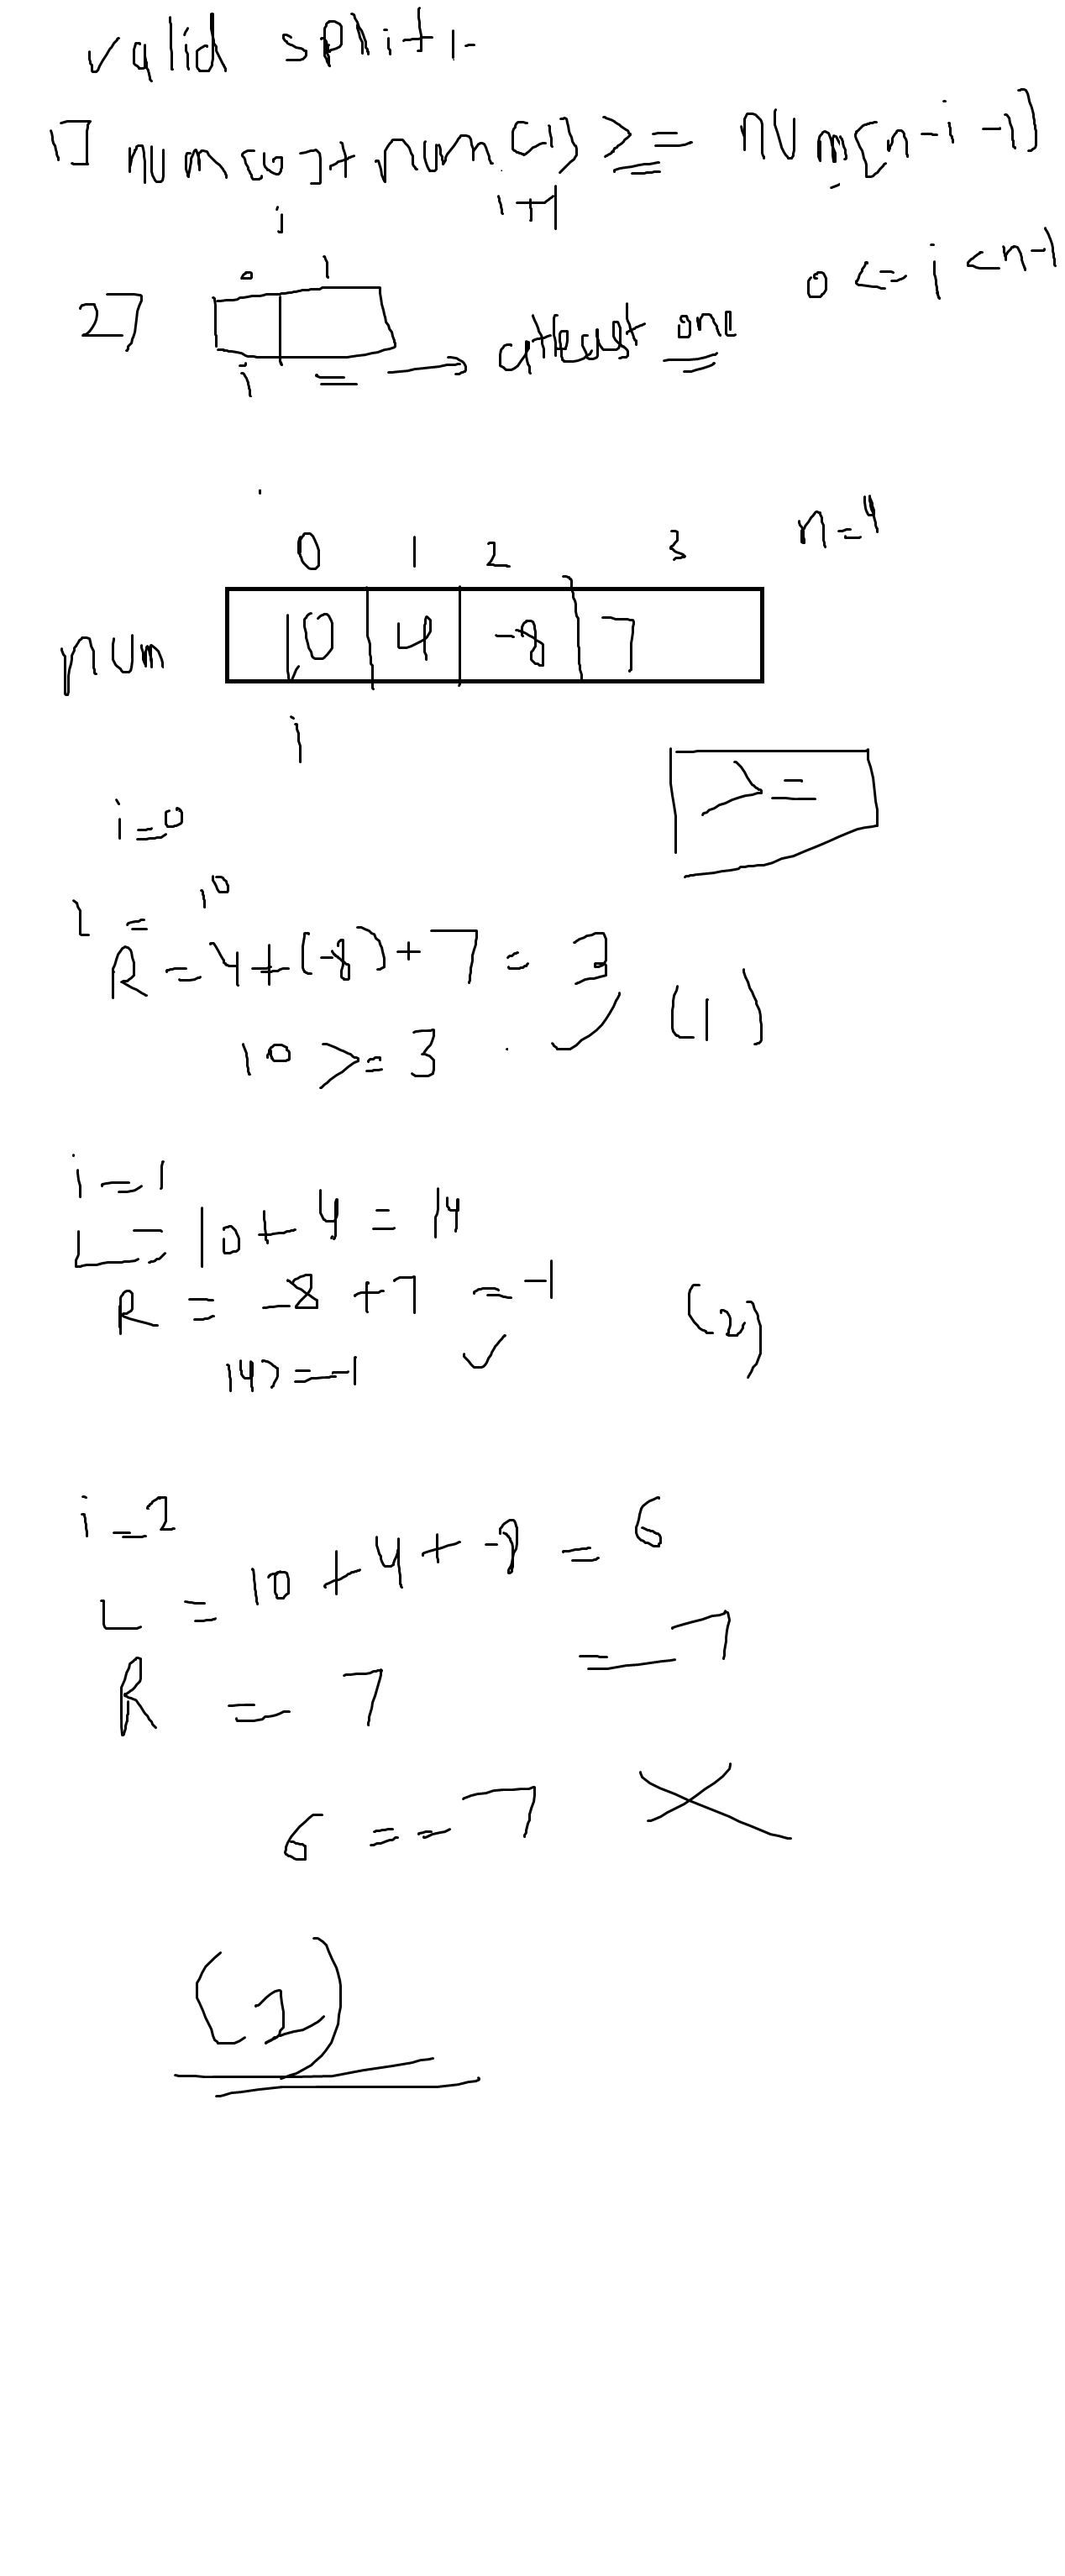 valid split :-
1] num[0] + num[1] >= num[n-i-1]
i i+1
0 <= i < n-1
0 1
2] → atleast one
i =
0 1 2 3 n=4
num 10 4 -8 7
i
>=
i=0
L = 10
R = 4+(-8)+7 = 3
10 >= 3 ✓ (1)
i=1
L = 10+4 = 14
R = -8+7 = -1
(2)
14>=-1 ✓
i=2
L = 10+4+-8 = 6
R = 7 = 7
6 == 7 X
(2)